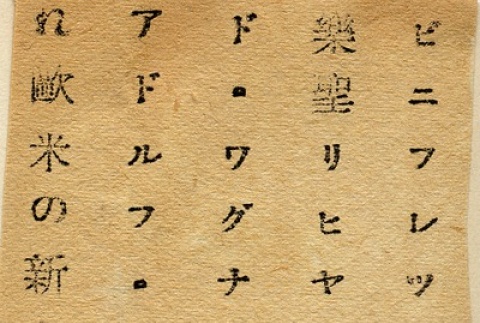 ビニフレツ
樂聖リヒヤ
ド・ワグナ
アドルフ・
れ歐米の新